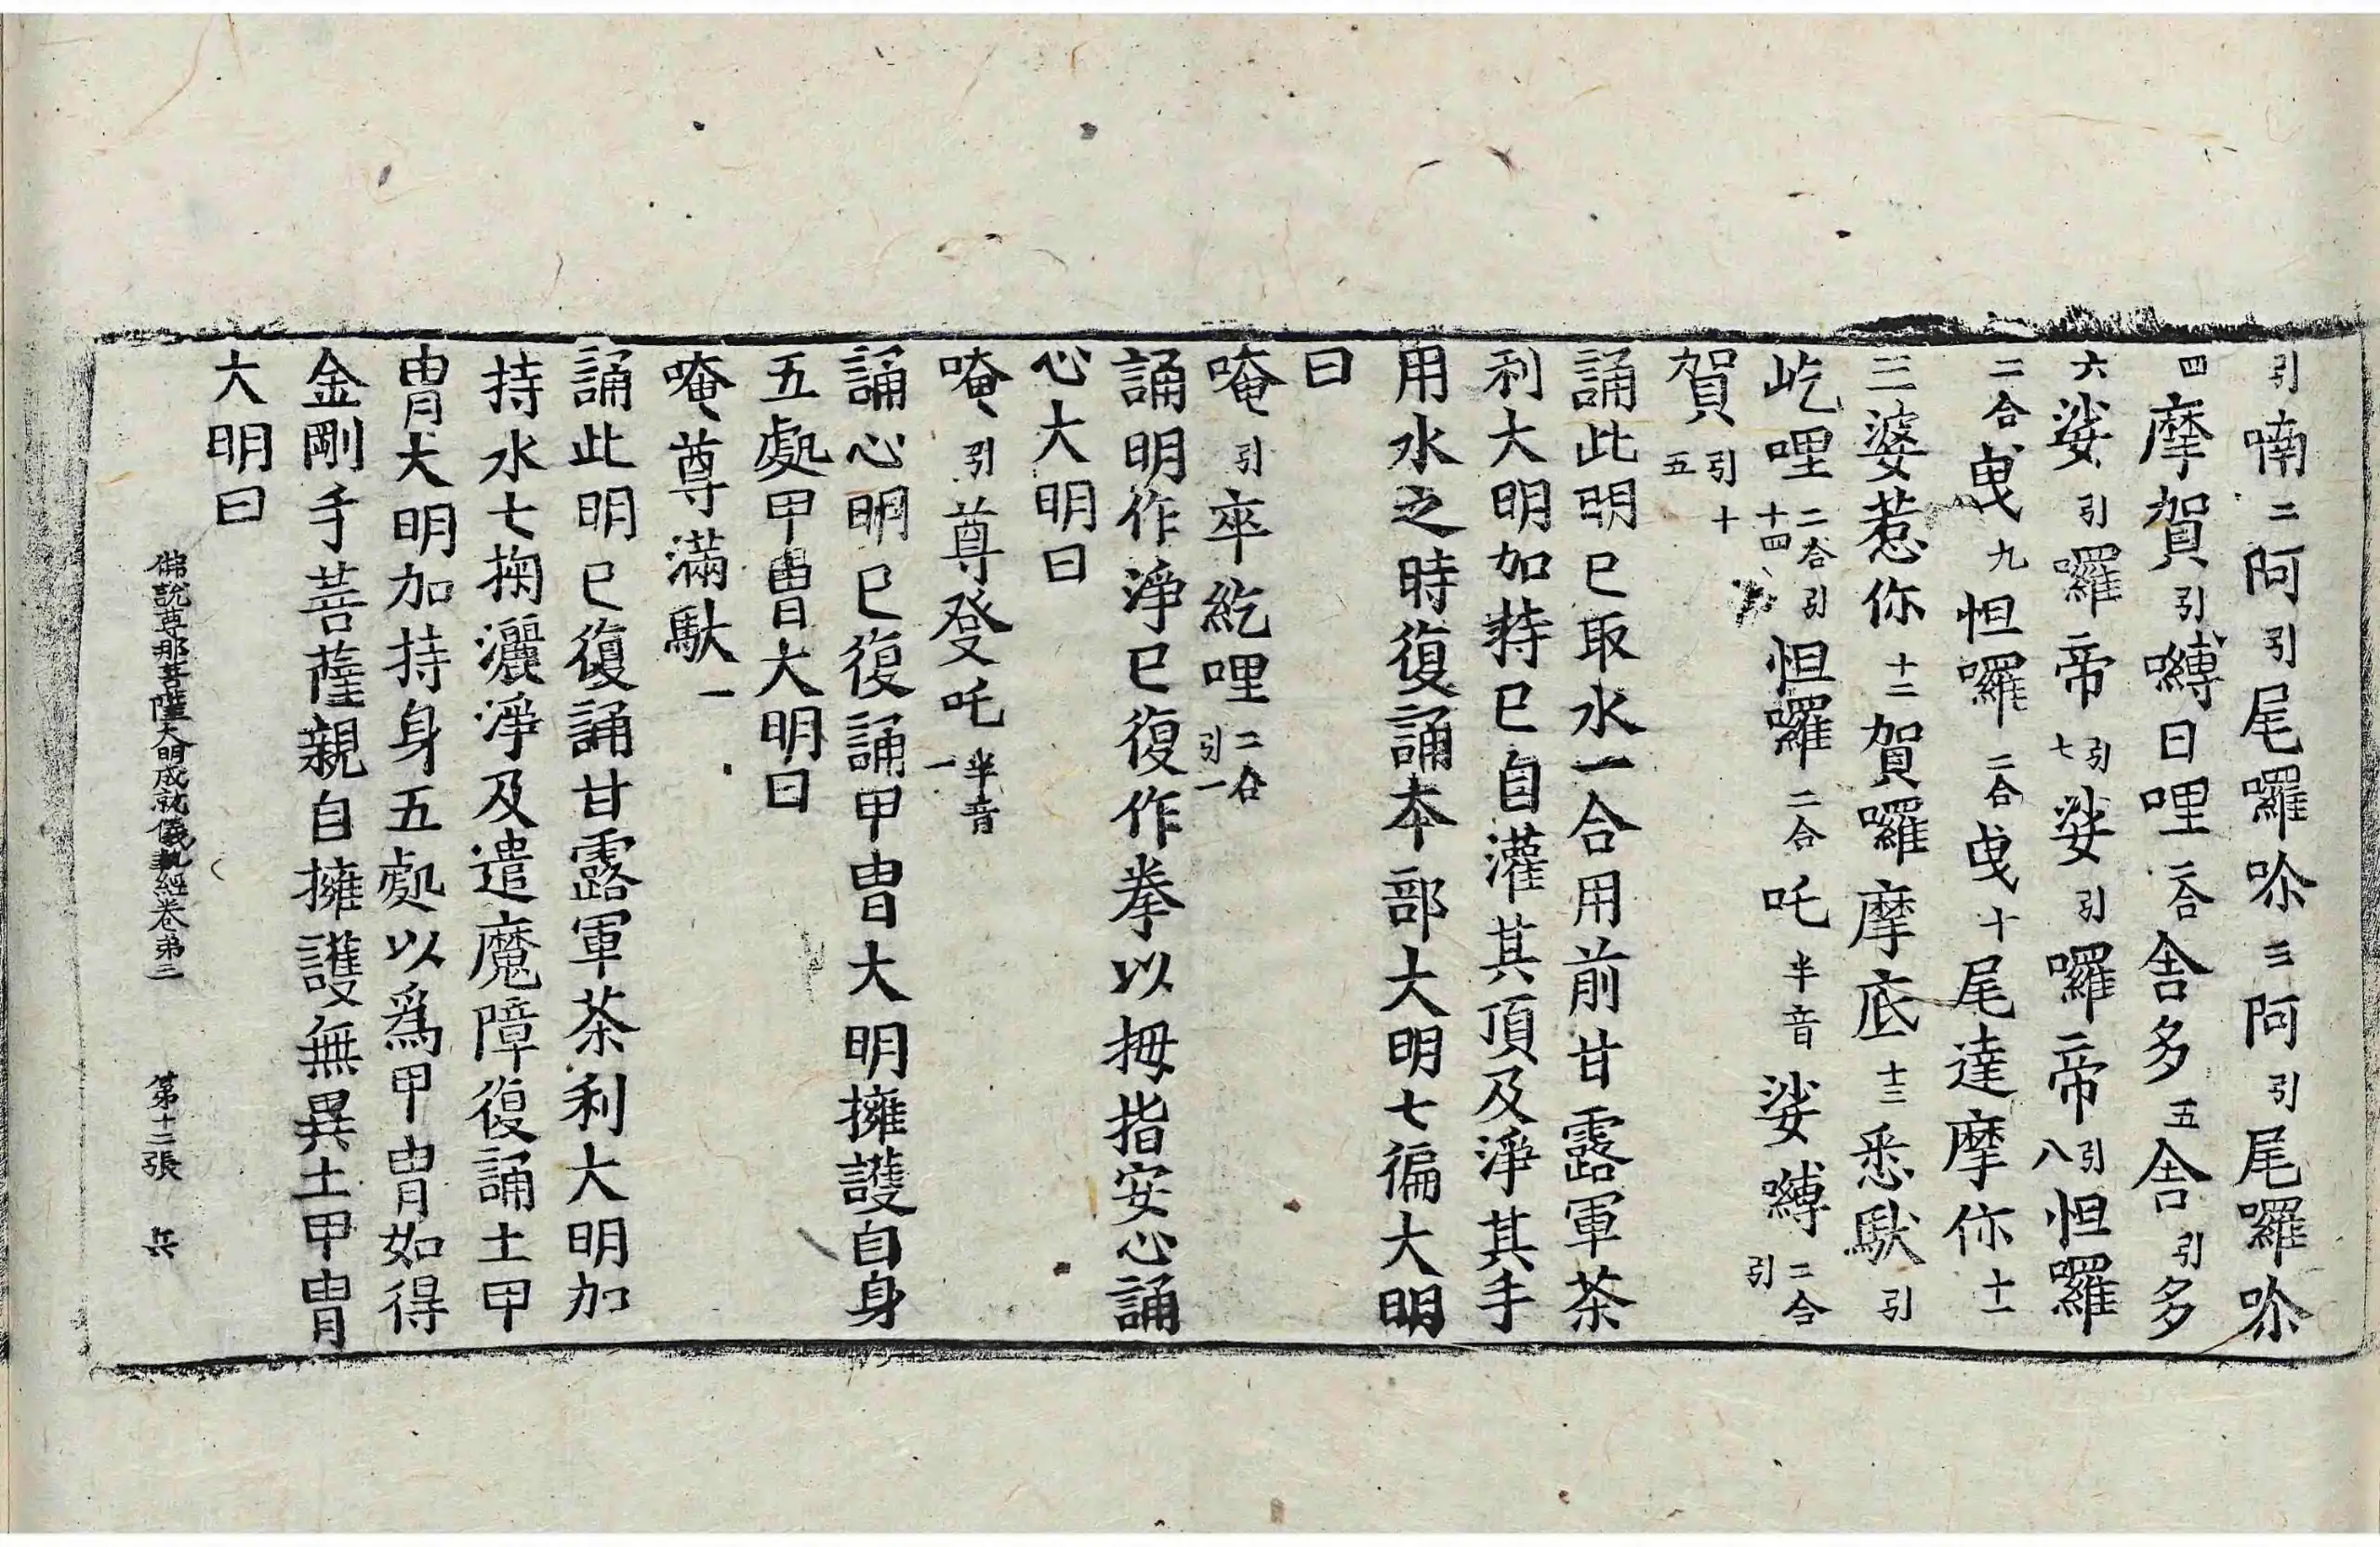 引喃二阿引尾囉吹三阿引尾囉吹
四摩賀引嚩日哩二合舍多五舍引多
六娑引囉帝引七娑引囉帝引八怛囉
二合曳九怛囉二合曳十尾達摩你十一
三婆惹你十二賀囉摩底十三悉馱引
屹哩二合引十四怛囉二合吒半音娑嚩二合引
賀引十五
誦此明已取水一合用前甘露軍茶
利大明加持已自灌其頂及淨其手
用水之時復誦本部大明七徧大明
曰
唵引卒紇哩二合引一
誦明作淨已復作拳以拇指安心誦
心大明曰
唵引尊發吒半音一
誦心明已復誦甲冑大明擁護自身
五處甲冑大明曰
唵尊滿馱一
誦此明已復誦甘露軍茶利大明加
持水七掬灑淨及遣魔障復誦土甲
冑大明加持身五處以爲甲冑如得
金剛手菩薩親自擁護無異土甲冑
大明曰
佛說尊那菩薩大明成就儀軌經卷第三 第十二張 兵